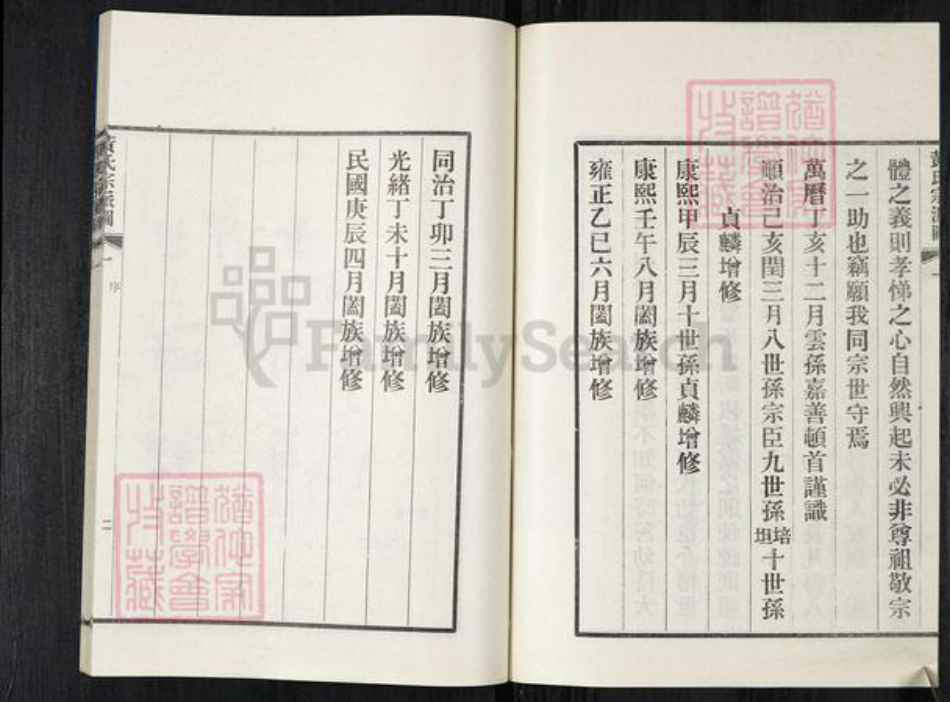 體之義則孝悌之心自然興起未必非尊祖敬宗
之一助也竊願我同宗世守焉
萬曆丁亥十二月雲孫嘉善頓首謹識
順治己亥閏三月八世孫宗臣九世孫培坦十世孫
貞麟增修
康熙甲辰三月十世孫貞麟增修
康熙壬午八月闔族增修
雍正乙巳六月闔族增修
同治丁卯三月闔族增修
光緒丁未十月闔族增修
民國庚辰四月闔族增修
黃氏宗派圖
一
序
二
FamilySearch